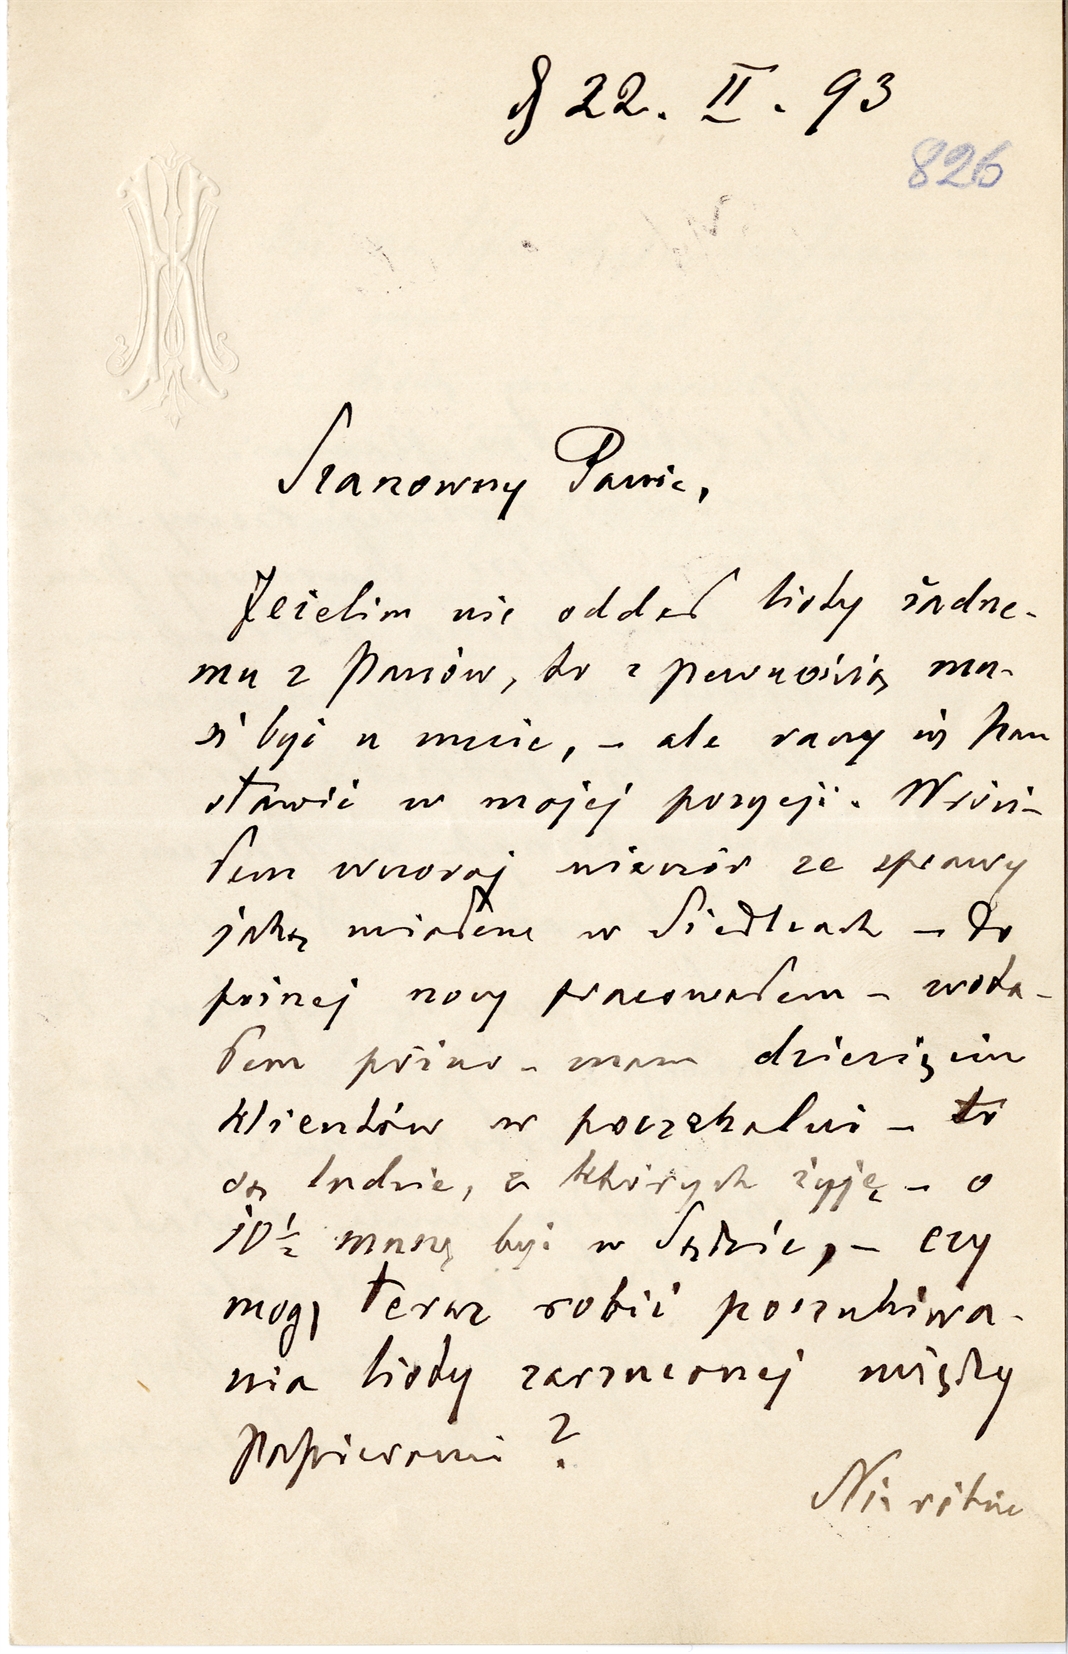 D 22. II. 93
826
Szanowny Panie,
Jeżelim nie oddał listy żadne-
mu z Panów, to z pewnością mu-
si być u mnie, – ale raczy się Pan
stawić w mojej pozycji. Wróci-
łem wczoraj wieczór ze sprawy
jaką miałem w Siedlcach – do
późnej nocy pracowałem – wsta-
łem późno – mam dziesięciu
klientów w poczekalni – to
są ludzie, z których żyję – o
10½ muszę być w Sądzie, – czy
mogę teraz robić poszukiwa-
nia listy zarzuconej między
papierami?
Nie róbcie